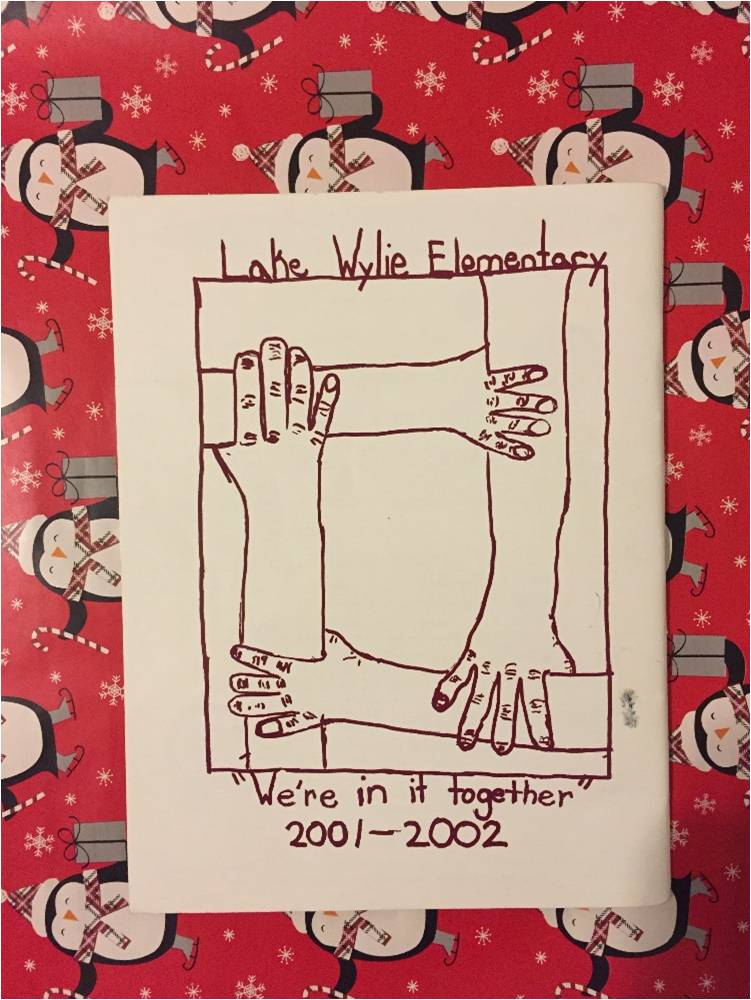 Lake Wylie Elementary
"We're in it together"
2001-2002